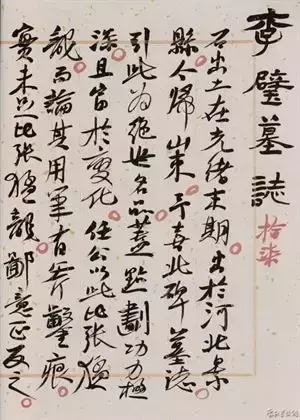 李璧墓誌
拾柒
石出土在光緒末期出於河北景
縣今歸山東予喜此碑墓誌
引此為絕世名品蓋點劃功力極
深且富於變化任公以此比張猛
龍而論其用筆有斧鑿痕
實未足比張猛龍鄙意正反之